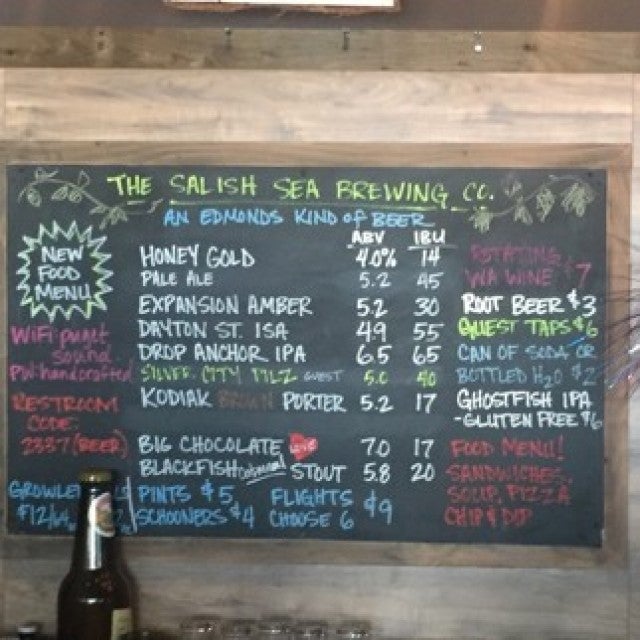 THE SALISH SEA BREWING CO.
AN EDMONDS KIND OF BEER
ABV IBU
NEW
FOOD
MENU
HONEY GOLD 4.0% 14
PALE ALE 5.2 45
EXPANSION AMBER 5.2 30
DAYTON ST. ISA 4.9 55
DROP ANCHOR IPA 6.5 65
SILVER CITY PILZ GUEST 5.0 40
KODIAK BROWN PORTER 5.2 17
BIG CHOCOLATE LOVE 7.0 17
BLACKFISH Oatmeal STOUT 5.8 20
PINTS $5 FLIGHTS $9
SCHOONERS $4 CHOOSE 6
WiFi: puget
sound
PW: handcrafted
RESTROOM
CODE:
2337 (BEER)
GROWLER
$12/
ROTATING
WA WINE $7
ROOT BEER $3
GUEST TAPS $6
CAN OF SODA OR
BOTTLED H2O $2
GHOSTFISH IPA
-GLUTEN FREE $6
FOOD MENU!
SANDWICHES,
SOUP, PIZZA
CHIP & DIP